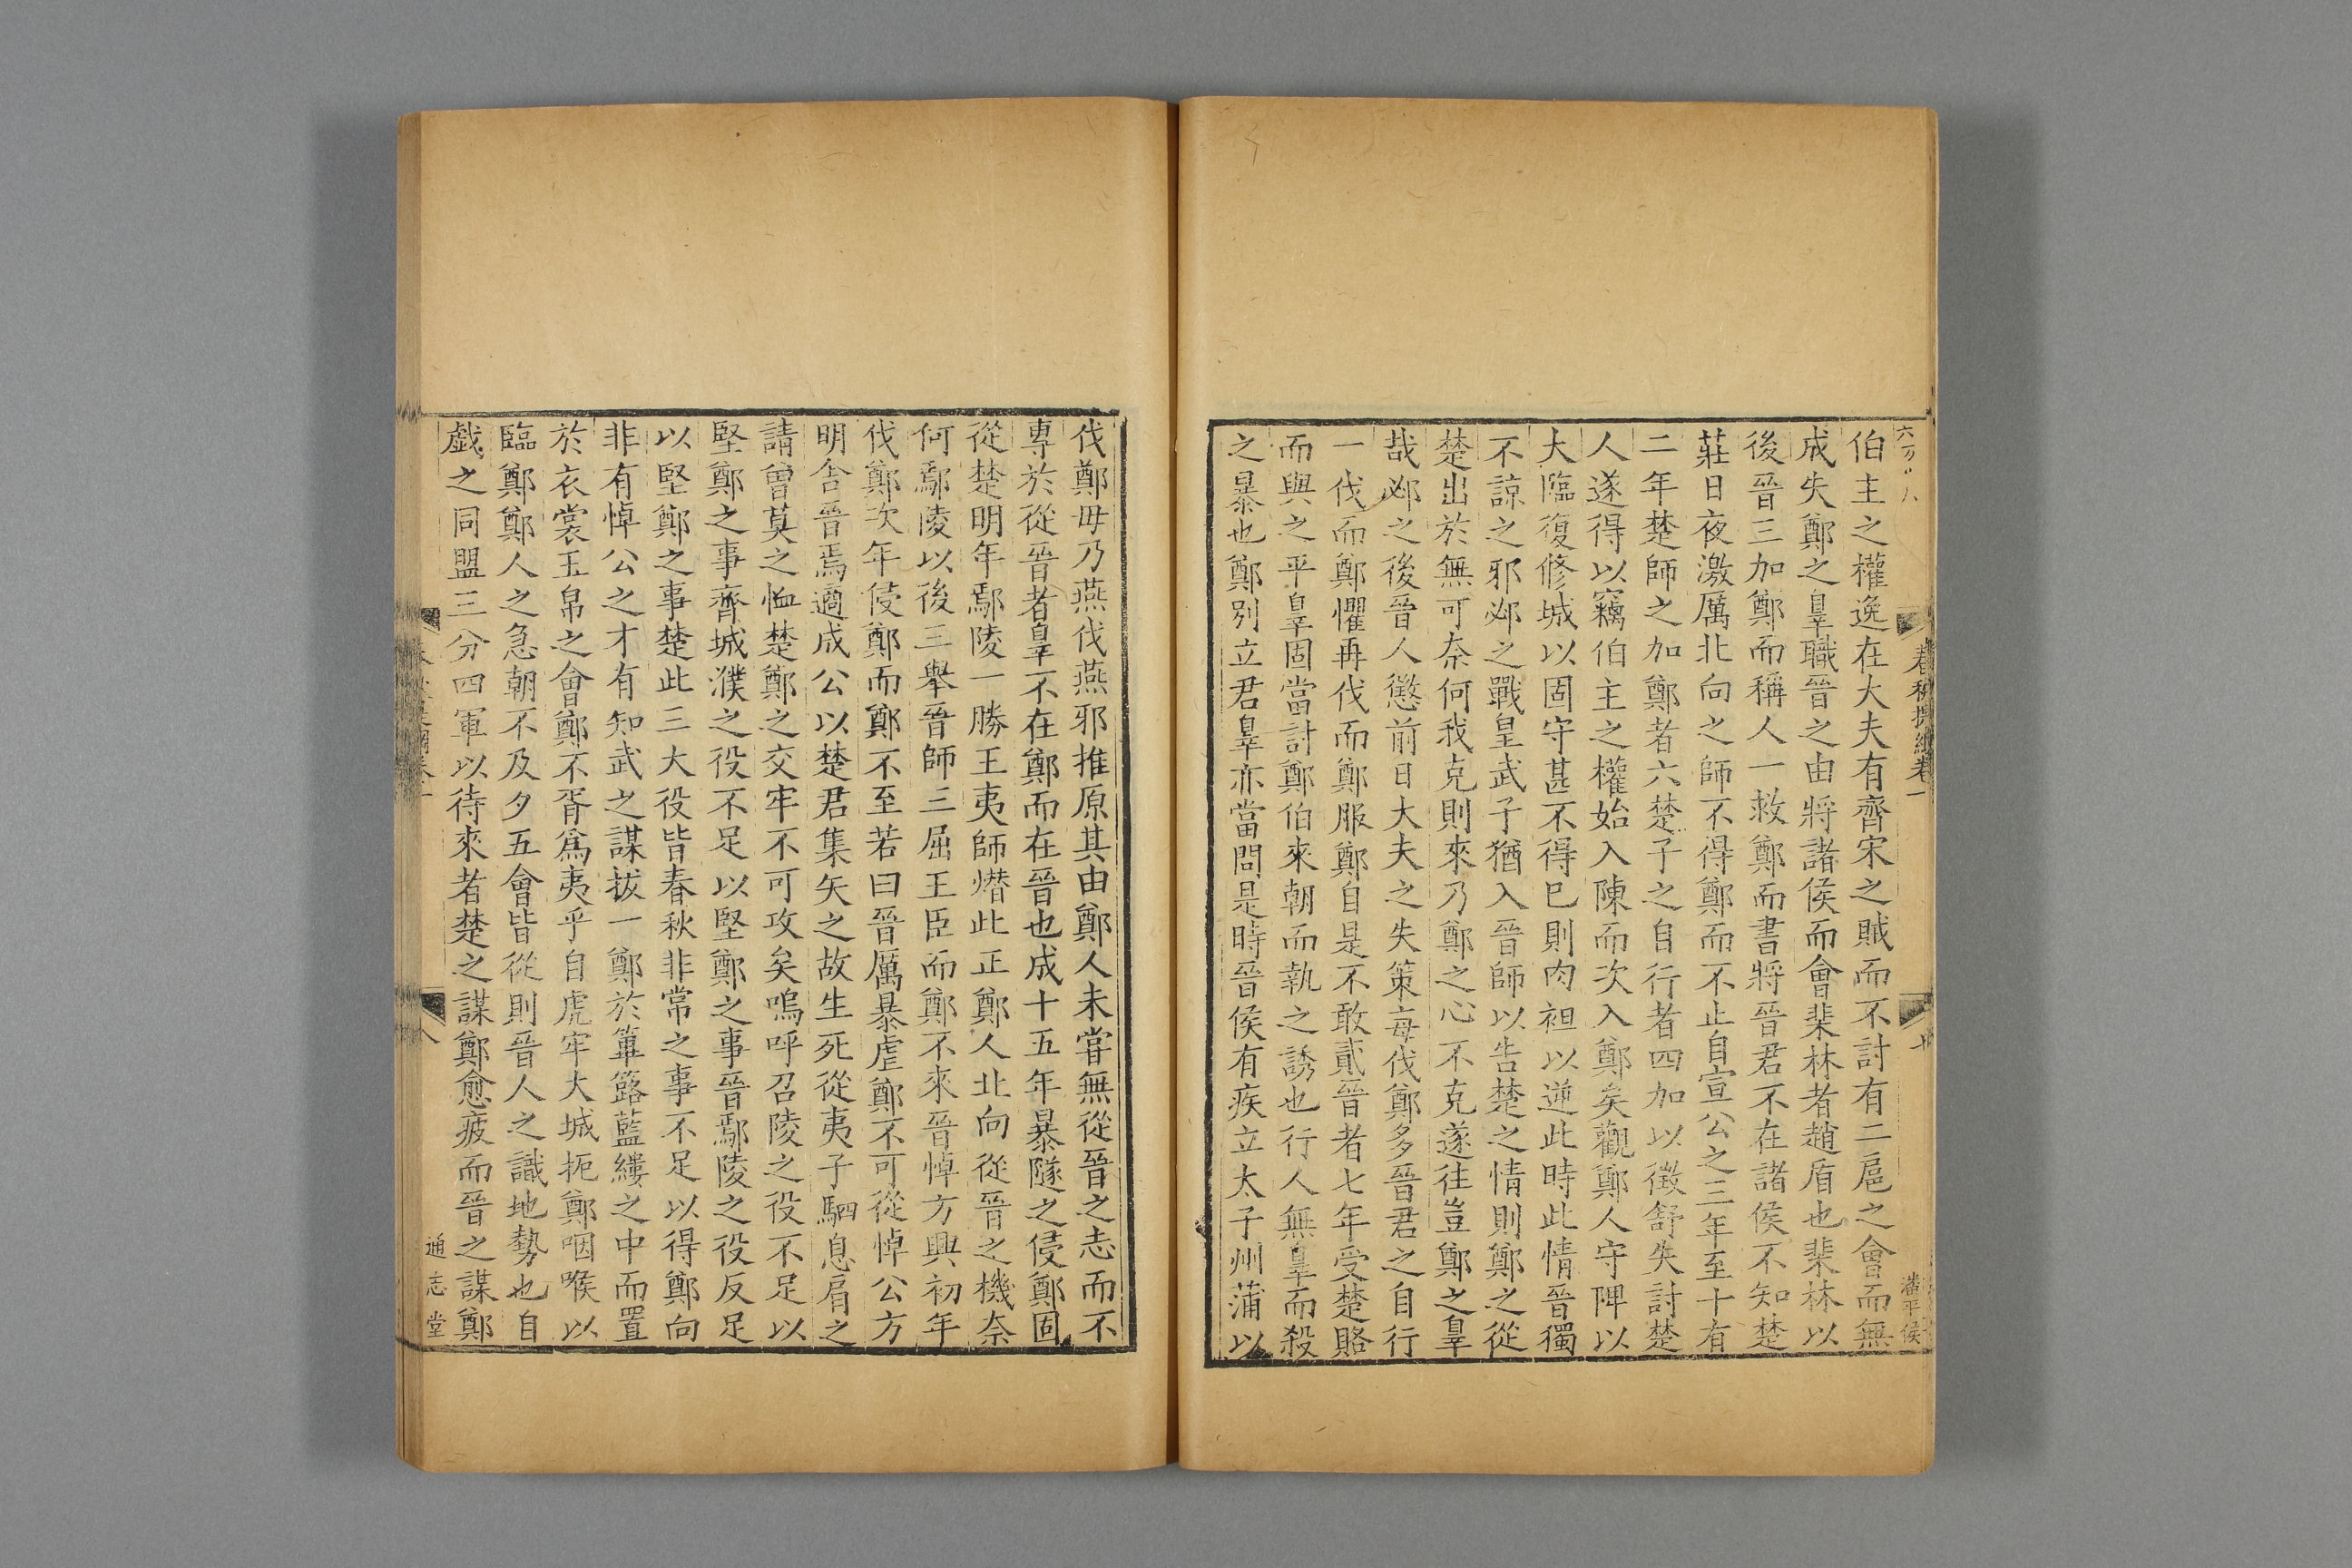 春秋提綱卷一
伯主之權逸在大夫有齊宋之賊而不討有二扈之會而無
成失鄭之辠職晉之由將諸侯而會棐林者趙盾也棐林以
後晉三加鄭而稱人一救鄭而書將晉君不在諸侯不知楚
莊日夜激厲北向之師不得鄭而不止自宣公之三年至十有
二年楚師之加鄭者六楚子之自行者四加以徵舒失討楚
人遂得以竊伯主之權始入陳而次入鄭矣觀鄭人守陴以
大臨復修城以固守甚不得已則肉袒以逆此時此情晉獨
不諒之邪邲之戰皇武子猶入晉師以告楚之情則鄭之從
楚出於無可奈何我克則來乃鄭之心不克遂往豈鄭之辠
哉邲之後晉人懲前日大夫之失策每伐鄭多晉君之自行
一伐而鄭懼再伐而鄭服鄭自是不敢貳晉者七年受楚賂
而與之平辠固當討鄭伯來朝而執之誘也行人無辠而殺
之暴也鄭別立君辠亦當問是時晉侯有疾立太子州蒲以
潘平侯
伐鄭毋乃燕伐燕邪推原其由鄭人未嘗無從晉之志而不
專於從晉者辠不在鄭而在晉也成十五年暴隧之侵鄭固
從楚明年鄢陵一勝王夷師熸此正鄭人北向從晉之機奈
何鄢陵以後三舉晉師三屈王臣而鄭不來晉悼方興初年
伐鄭次年侵鄭而鄭不至若曰晉厲暴虐鄭不可從悼公方
明舍晉焉適成公以楚君集矢之故生死從夷子駟息肩之
請曾莫之恤楚鄭之交牢不可攻矣嗚呼召陵之役不足以
堅鄭之事齊城濮之役不足以堅鄭之事晉鄢陵之役反足
以堅鄭之事楚此三大役皆春秋非常之事不足以得鄭向
非有悼公之才有知武之謀拔一鄭於篳簬藍縷之中而置
於衣裳玉帛之會鄭不胥爲夷乎自虎牢大城扼鄭咽喉以
臨鄭鄭人之急朝不及夕五會皆從則晉人之識地勢也自
戲之同盟三分四軍以待來者楚之謀鄭愈疲而晉之謀鄭
通志堂